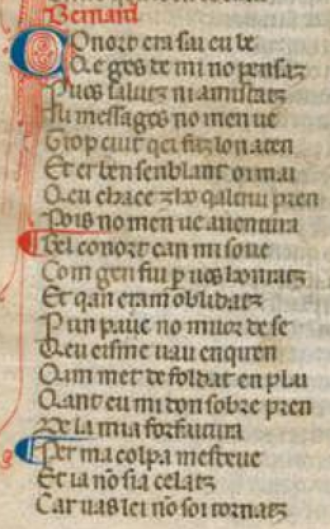 Bernard
Conort era sai eu be
Qe ges de mi no pensaz
Puos saluz ni amistatz
Ni messages no men ue
Trop cuit qei faz lon aten
Et er ben senblanz oimai
Qeu chace zho qaltrui pren
Pois no men ue auentura
Bel conort can mi soue
Com gen fui p uos honratz
Et qan eram oblidatz
P un pauc no muor de se
Qeu eisme uau enqueren
Qim met de foldat en plai
Qant eu mi don sobre pren
De la mia forfaitura
Per ma colpa mesdeue
Et ia nō sia celatz
Car uas lei nō soi tornatz